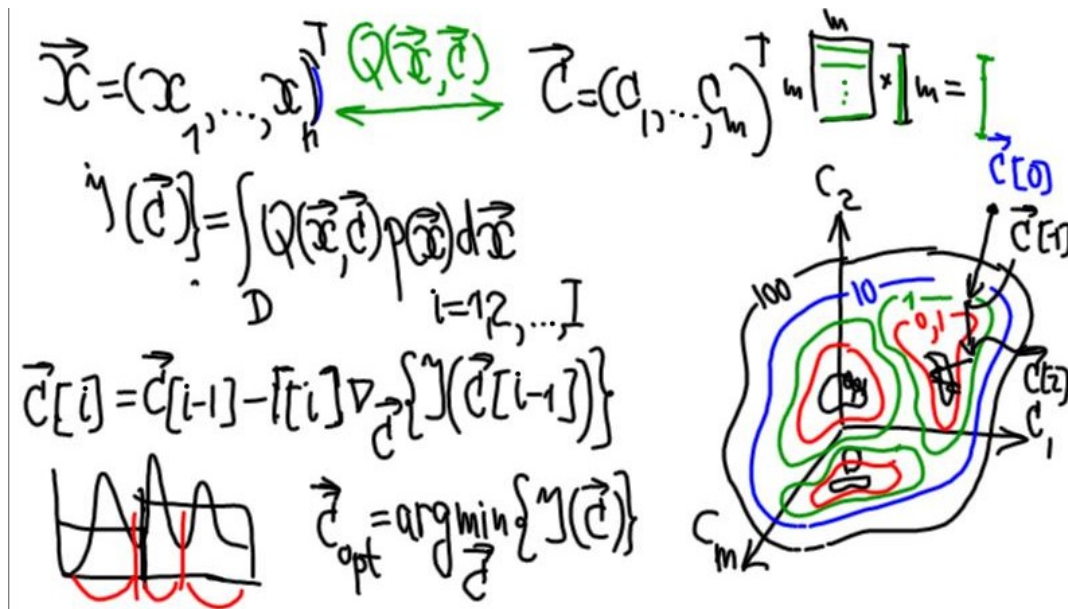 x⃗ = (x₁, ..., xₙ)ᵀ Q(x⃗, c⃗) c⃗ = (c₁, ..., cₘ)ᵀ m m × m =
y(c⃗)} = ∫_D Q(x⃗, c⃗) p(x⃗) dx⃗
i=1,2,...,I
c⃗[i] = c⃗[i-1] - Γ[i] ∇_c⃗ {y(c⃗[i-1])}
c⃗_opt = arg min_c⃗ {y(c⃗)}
c⃗[0]
C₂
c⃗[1]
100 10 1
0,1
c⃗[2]
C₁
Cₘ